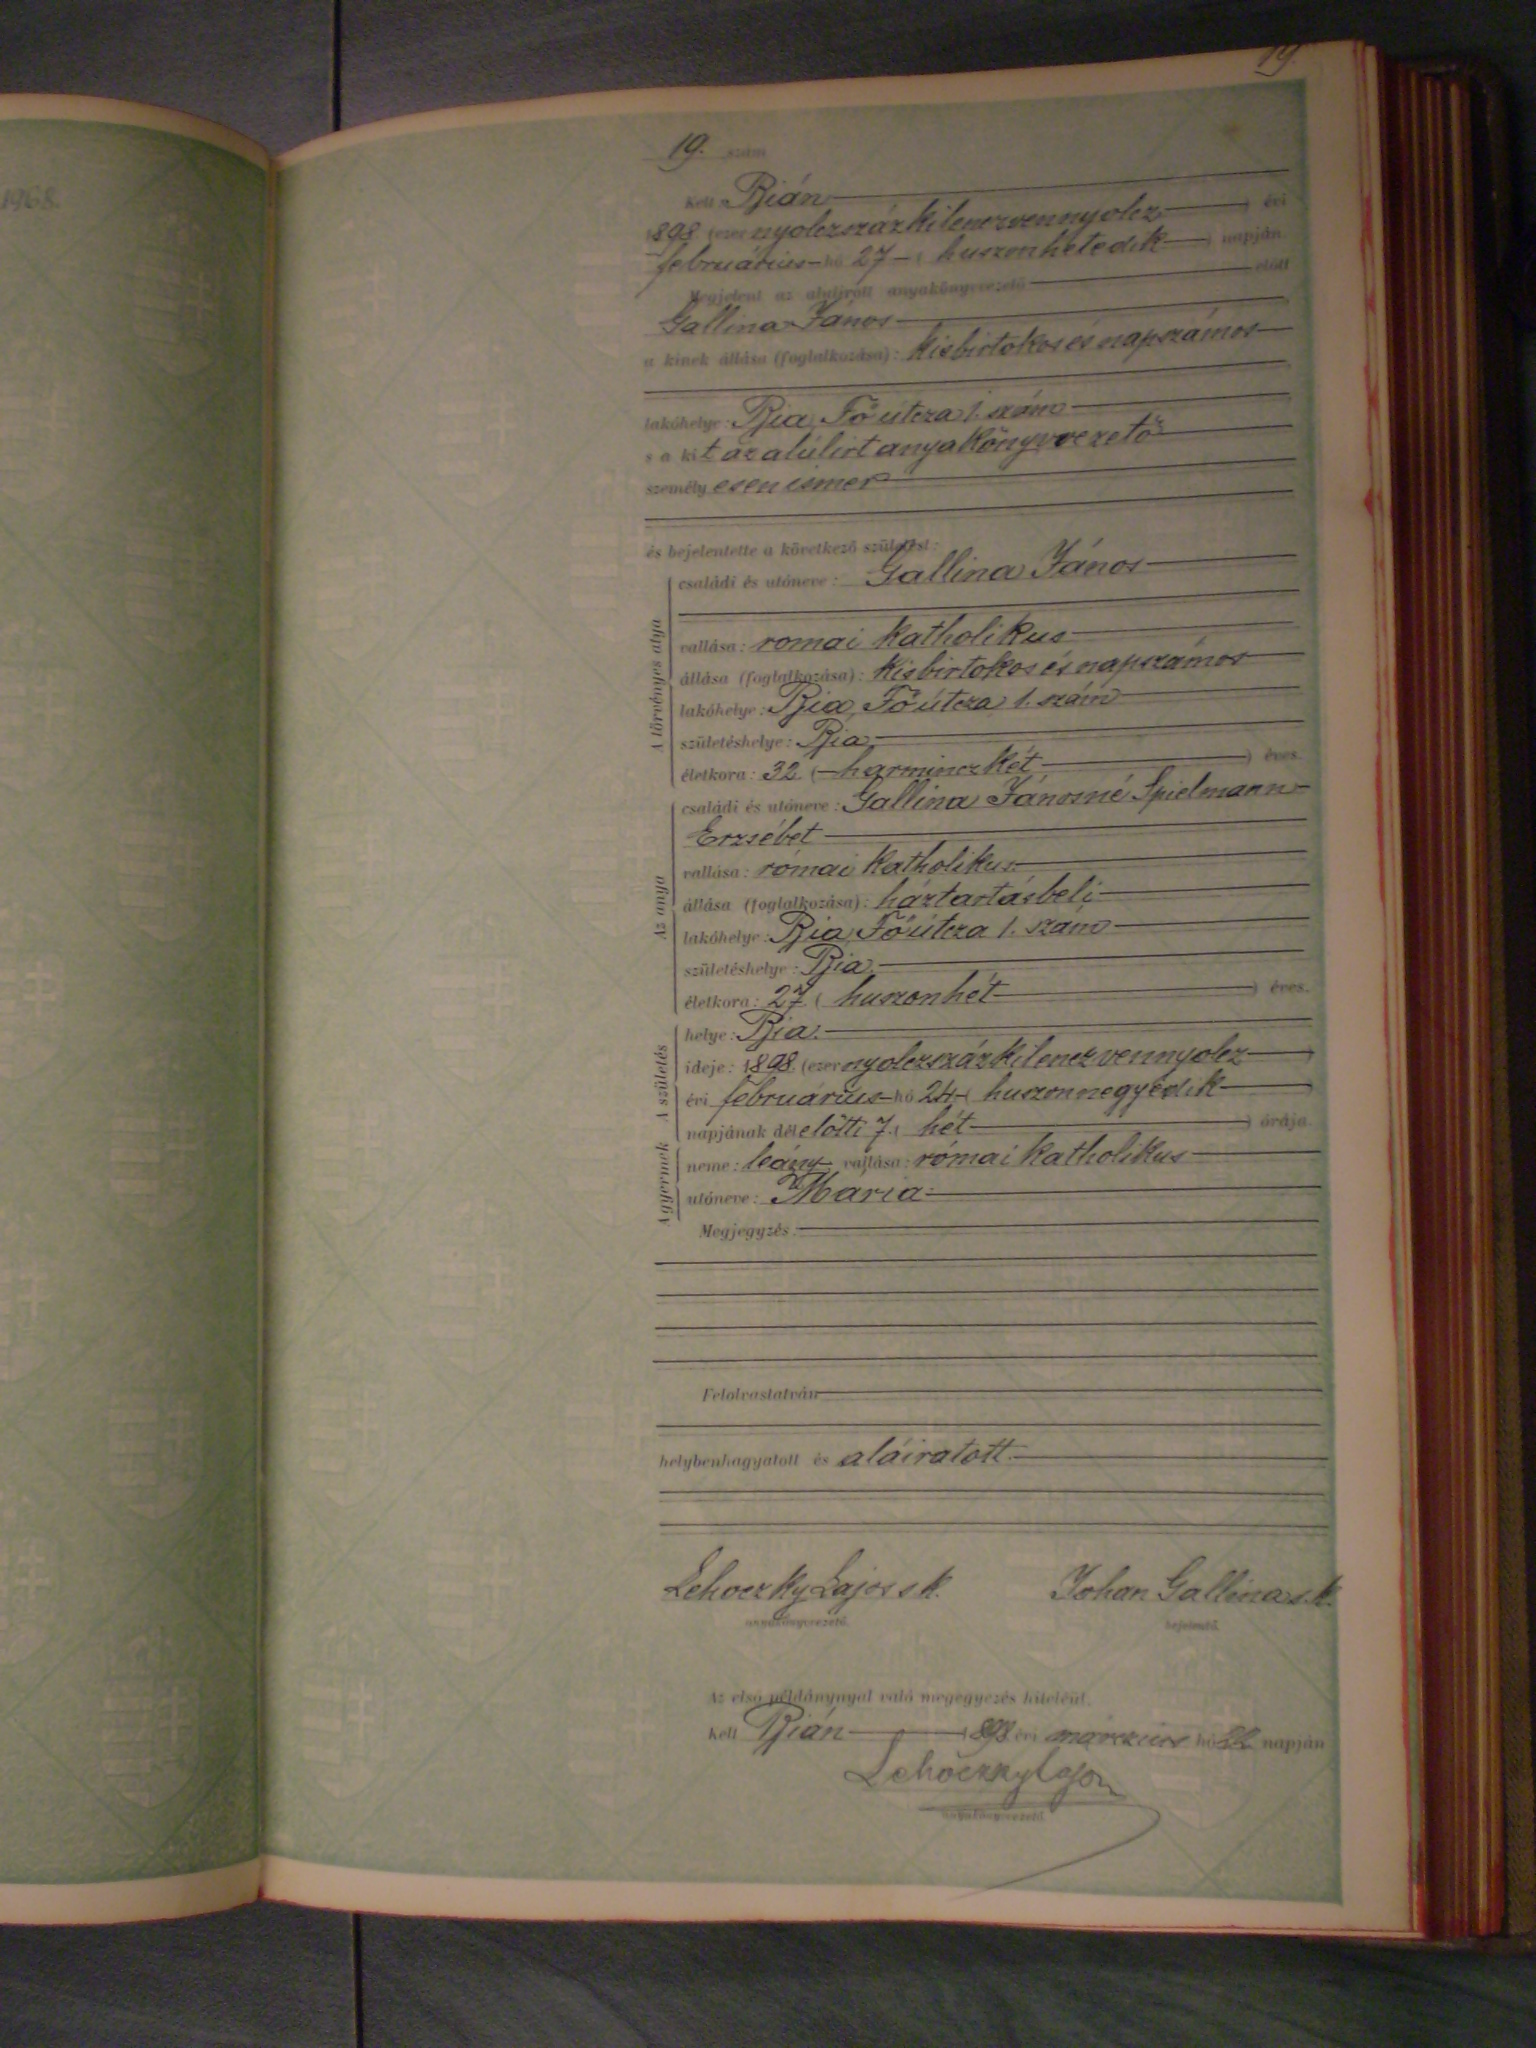 1968.
19.
19. szám
Kelt Bián
1898 (ezer nyolczszázkilenczvennyolcz) évi
február­ius hó 27 (huszonhetedik) napján.
Megjelent az alulírott anyakönyvvezető előtt
Gallina János
a kinek állása (foglalkozása): kisbirtokos és napszámos
lakóhelye: Bia, Fő útcza 1. szám
s a kit az alúlirt anyakönyvvezető
személyesen ismer
és bejelentette a következő születést:
A törvényes atya
családi és utóneve: Gallina János
vallása: romai katholikus
állása (foglalkozása): kisbirtokos és napszámos
lakóhelye: Bia, Fő útcza 1. szám
születéshelye: Bia
életkora: 32 (harminczkét) éves.
Az anya
családi és utóneve: Gallina Jánosné Spielmann
Erzsébet
vallása: római katholikus
állása (foglalkozása): háztartásbeli
lakóhelye: Bia Fő útcza 1. szám
születéshelye: Bia
életkora: 27 (huszonhét) éves.
A születés
helye: Bia.
ideje: 1898. (ezer nyolczszázkilenczvennyolcz)
évi február­ius hó 24 (huszonnegyedik)
napjának délelőtti 7 (hét) órája.
A gyermek
neme: leány vallása: római katholikus
utóneve: Maria
Megjegyzés:
Felolvastatván
helybenhagyatott és aláiratott.
Lehoczky Lajos s. k. Johan Gallina s. k.
anyakönyvvezető. bejelentő.
Az első példánynyal való megegyezés hiteléül.
Kelt Bián 1898 évi márczius hó napján
Lehoczky Lajos
anyakönyvvezető.